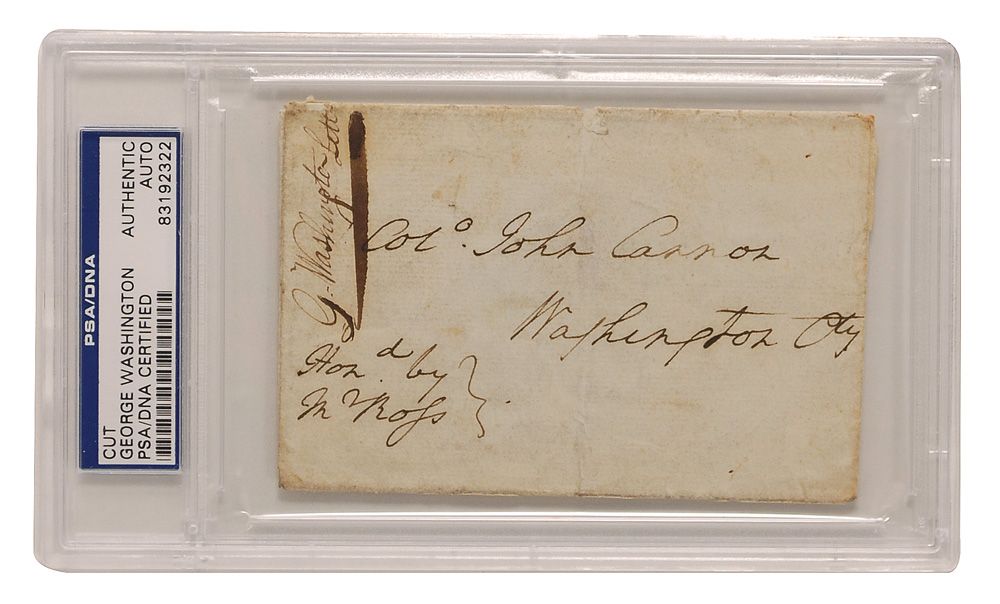 PSA/DNA
CUT
GEORGE WASHINGTON
PSA/DNA CERTIFIED
AUTHENTIC
AUTO
83192322
G. Washington
Colo. John Cannon
Washington Cty
Hond. by
Mr Ross